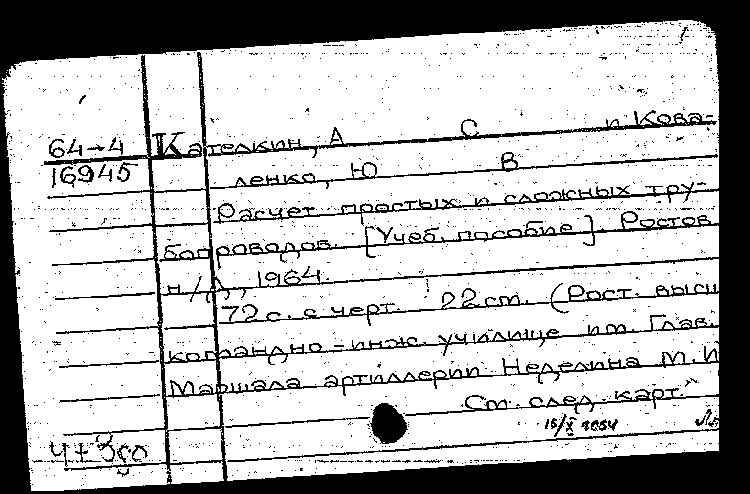 64-4 Кателкин, А С и Кова-
16945 ленко, Ю В
Расчет простых и сложных тру-
бопроводов. [Учеб. пособие]. Ростов
н/Д, 1964.
72 с. с черт. 22 см. (Рост. высш
командно-инж. училище им. Глав.
Маршала артиллерии Неделина М. И
См. след. карт.
15/X 1964